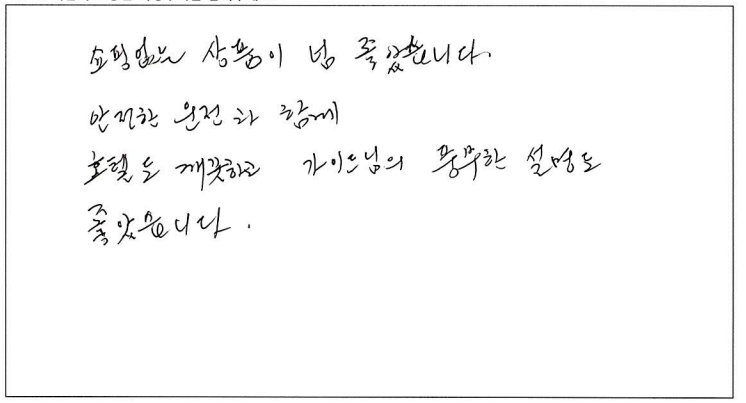 쇼핑없는 상품이 넘 좋았습니다.
안전한 운전과 함께
호텔도 깨끗하고 가이드님의 풍부한 설명도
좋았습니다.